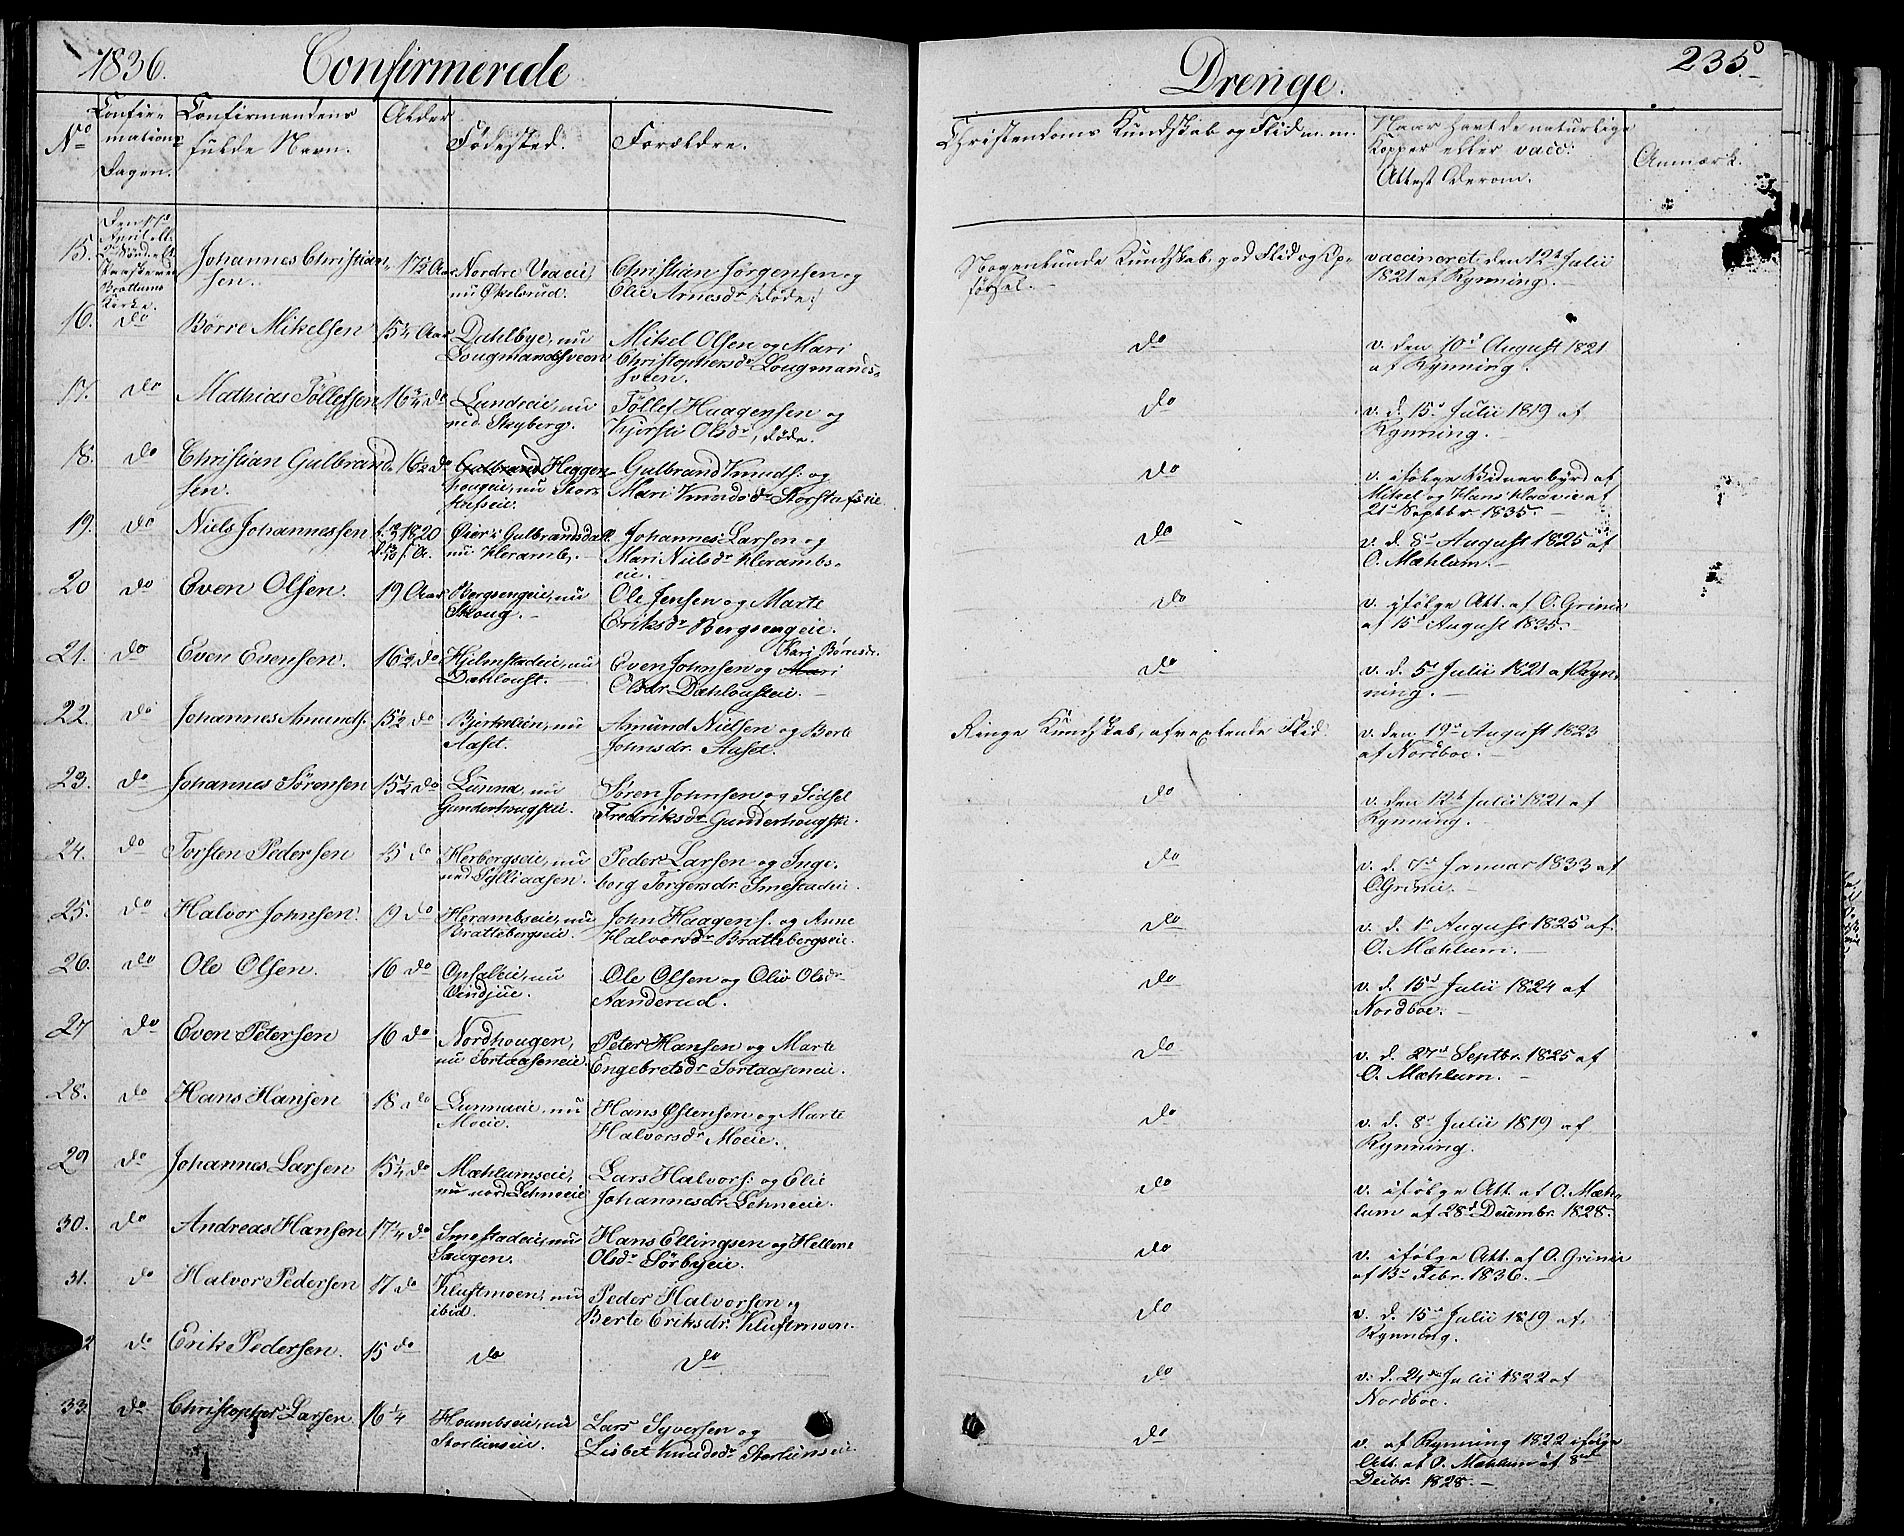 1836. Confirmerede Drenge. 235.
No Confirmations Dagen. Confirmandens fulde Navn. Alder Fødested. Forældre. Christendoms Kundskab og Flid m. m. Naar havt de naturlige Kopper eller vacc: Attest derom. Anmærk.
15. Johannes Christiansen. 17½ Aar Nordre Veaeie, nu Christian Jørgensen og Elie Arnesdr (døde) Nogenlunde Kundskab, god Flid og Opførsel. vaccineret den 12t Julii 1821 af Rynning.
16. do Børre Mikelsen 15¼ Aar Dahlbye, nu Lougmandsveen Mikel Olsen og Mari Christophersdr Lougmandsveen. do v. den 10d August 1821 af Rynning.
17. do Mathias Tøllefsen 16¾ do Lundseie, nu ned. Skyberg. Tøllef Haagensen og Kjersti Olsdr, døde. do v. d. 15d Julii 1819 af Rynning.
18. do Christian Gulbrandsen. 16½ do Heggenhougeie, nu Storstafseie. Gulbrand Knuds: og Mari Knudsdr Storstafseie. do v. ifølge Vidnesbyrd af Mikel og Hans Kravie af 21d Septbr. 1835.
19. do Niels Johannessen Øier i Gulbrandsdall. nu Kleramb. Johannes Larsen og Mari Nielsdr Klerambseie. do v. d. 8d August 1825 af O. Mæhlum.
20 do Even Olsen. 19 Aar Bergsengeie, nu Skoug. Ole Jensen og Marte Eriksdr Bergsengeie. do v. ifølge Att. af O. Grinie af 15d August 1835.
21. do Even Evensen. 16¾ do Hjelmstadeie, nu Dæhloust. Even Johnsen og Kari Børresdr. Dæhlousteie. do v. d. 5d Julii 1821 af Rynning.
22. do Johannes Amunds: 15½ do nu Aaset. Amund Nielsen og Berte Johnsdr. Aaset. Ringe Kundskab, afvexlende Flid. v. den 19d August 1823 af Nordboe.
23. do Johannes Sørensen 15½ do Lunna, nu Gunderhougseie. Søren Johnsen og Sidsel Fredriksdr Gunderhougseie. do v. den 12t Julii 1821 af Rynning.
24. do Torsten Pedersen 15 do Herbergseie, nu ned. Sylliaasen. Peder Larsen og Ingeborg Torgersdr. Smestadeie. do v. d. 7d Januar 1833 af O. Grinie.
25. do Halvor Johnsen. 19 do Herambseie, nu Brattebergseie. John Haagens: og Anne Halvorsdr Brattebergseie. do v. d. 1d August 1825 af O. Mæhlum.
26. do Ole Olsen. 16 do Opsaleie, nu Ole Olsen og Oliv Olsdr Aanderud. do v. d. 15d Julii 1824 af Nordboe.
27 do Even Petersen 16 do Nordhougen, nu Sortaaseneie. Peter Hansen og Marte Engebretsdr Sortaaseneie. do v. d. 27d Septbr. 1825 af O. Mæhlum.
28. do Hans Hansen 18 do Lunnaeie, nu Moeie. Hans Østensen og Marte Halvorsdr Moeie. do v. d. 8d Julii 1819 af Rynning.
29 do Johannes Larsen 15¼ do Mæhlumseie, nu nord. Lehneeie Lars Halvors: og Elie Johannesdr Lehneeie. do v. ifølge Att. af O. Mæhlum af 28d Decembr. 1828.
30. do Andreas Hansen 17¼ do Smestadeie, nu Saugen. Hans Ellingsen og Hellene Olsdr Sørbyeie. do v. ifølge Att. af O. Grinie af 13d Febr. 1836.
31. do Halvor Pedersen 17 do Kluftmoen, nu ibid. Peder Halvorsen og Berte Eriksdr. Kluftmoen. do v. d. 15d Julii 1819 af Rynning.
2 do Erik Pedersen. 15 do do do do v. d. 24de Julii 1822 af Nordboe.
33. do Christopher Larsen 16¼ Houmbseie, nu Storlienseie. Lars Syversen og Lisbet Knudsdr Storlienseie do v. af Rynning 1822 ifølge Att. af O. Mæhlum af 8de Decbr. 1828.